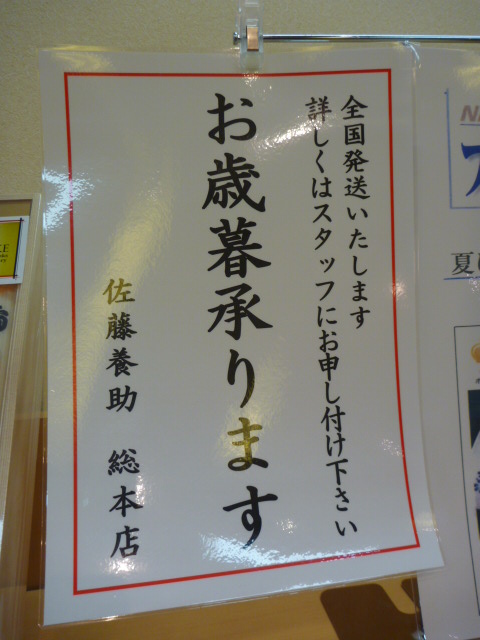 全国発送いたします
詳しくはスタッフにお申し付け下さい
お歳暮承ります
佐藤養助 総本店
夏